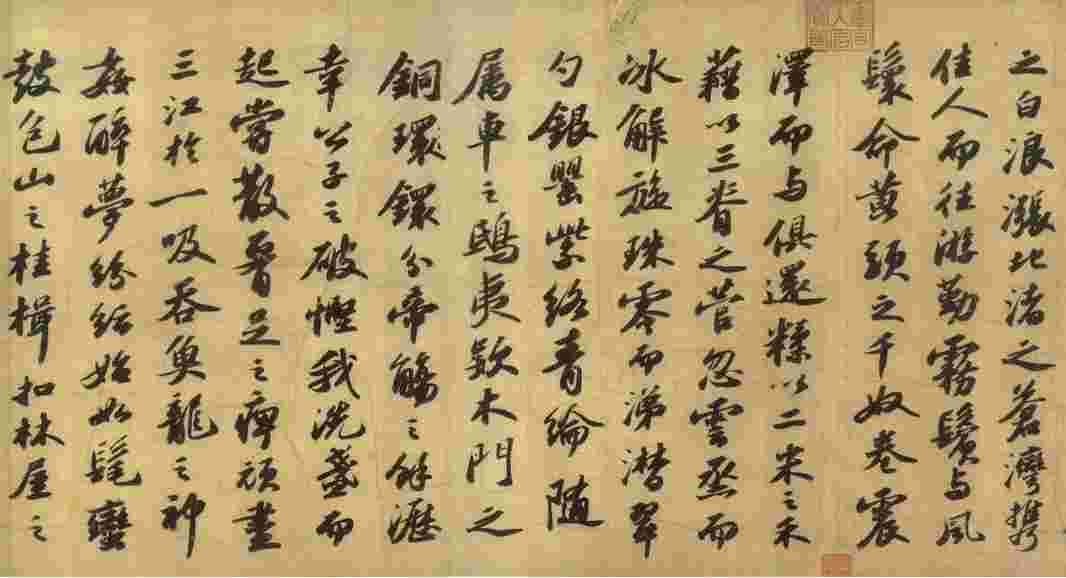 之白浪漲北渚之蒼灣携
佳人而往游勤霧鬢与風
鬟命黃頭之千奴卷震
澤而与俱還糅以二米之禾
藉以三脊之菅忽雲烝而
冰解旋珠零而涕潸翠
勺銀罌紫絡青綸随
属車之鴟夷款木門之
銅環鐶分帝觴之餘瀝
幸公子之破慳我洗盞而
起嘗散腰足之痹頑盡
三江於一吸吞魚龍之神
姦醉夢紛紜始如髦蠻
鼓包山之桂楫扣林屋之